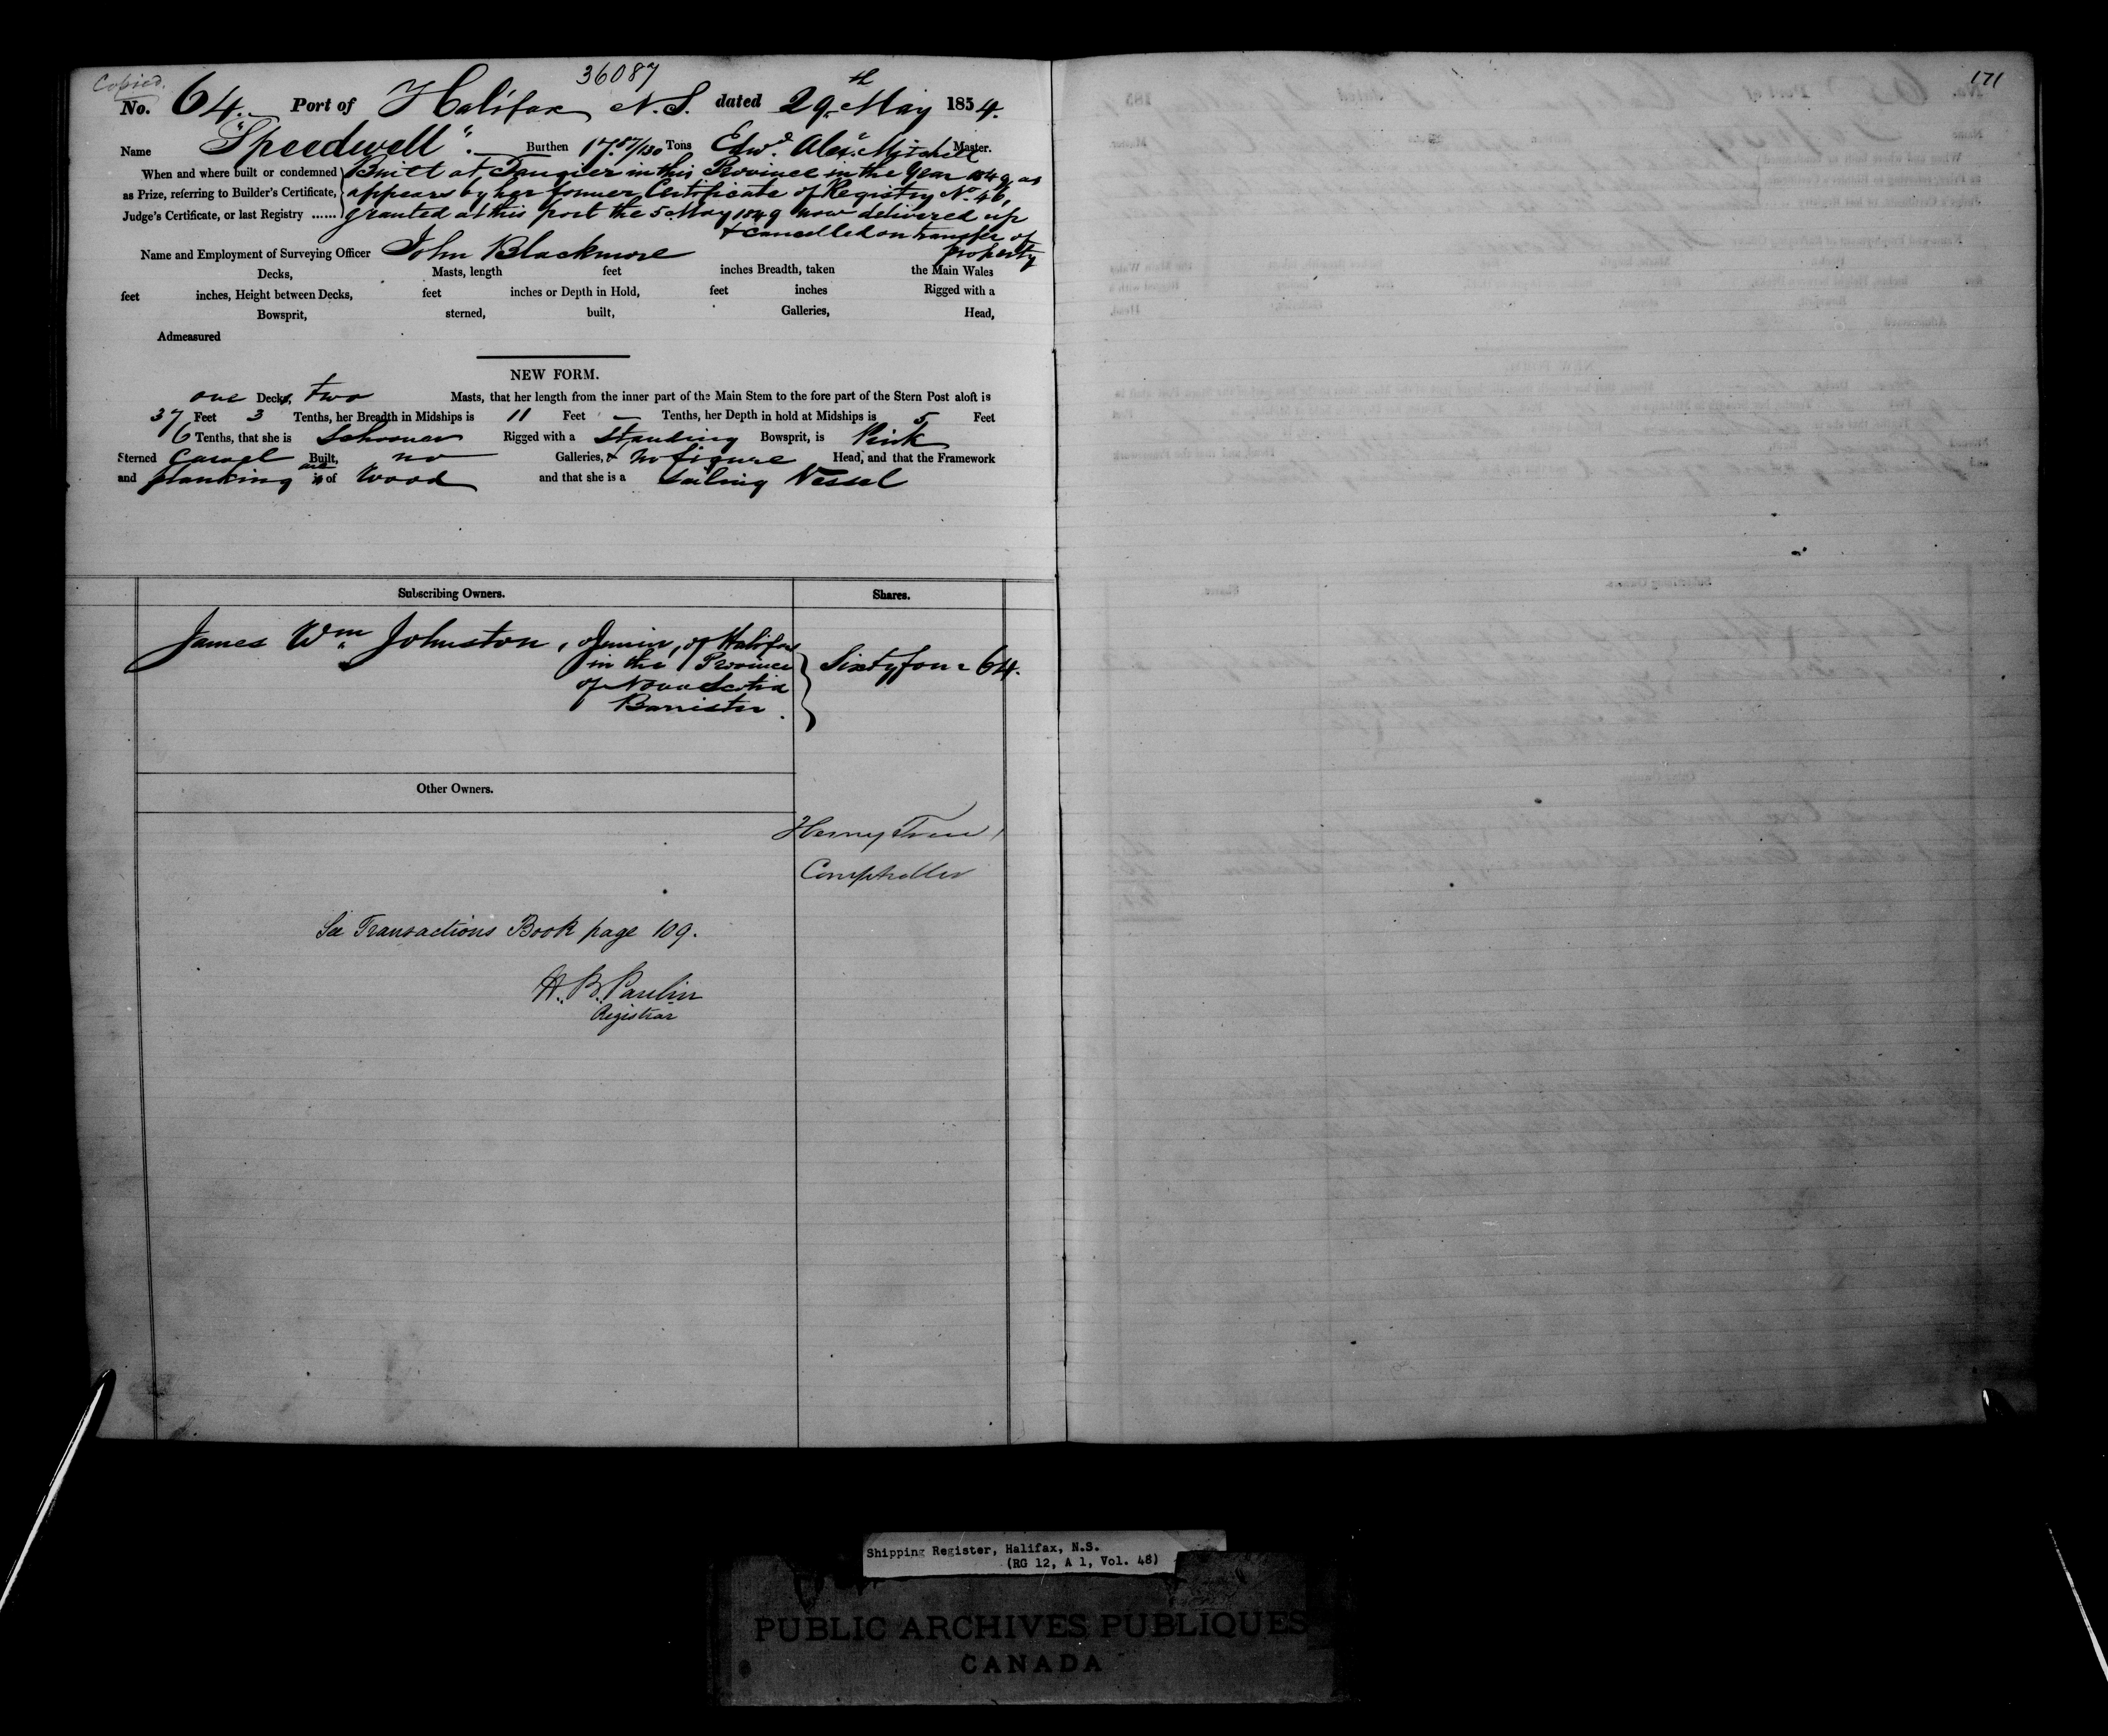 Copied.
36087
171
No. 64. Port of Halifax N.S. dated 29th May 1854.
Name "Speedwell". Burthen 17 87/130 Tons Edwd. Alexr. Mitchell Master.
When and where built or condemned Built at Tangier in this Province in the Year 1849, as
as Prize, referring to Builder's Certificate, appears by her former Certificate of Registry No. 46,
Judge's Certificate, or last Registry ...... granted at this port the 5 May 1849 now delivered up
& cancelled on transfer of
property
Name and Employment of Surveying Officer John Blackmore
Decks, Masts, length feet inches Breadth, taken the Main Wales
feet inches, Height between Decks, feet inches or Depth in Hold, feet inches Rigged with a
Bowsprit, sterned, built, Galleries, Head,
Admeasured
NEW FORM.
one Decks, two Masts, that her length from the inner part of the Main Stem to the fore part of the Stern Post aloft is
37 Feet 3 Tenths, her Breadth in Midships is 11 Feet — Tenths, her Depth in hold at Midships is 5 Feet
6 Tenths, that she is Schooner Rigged with a standing Bowsprit, is Pink
Sterned Carvel Built, no Galleries, & no figure Head, and that the Framework
and planking are is of Wood and that she is a Sailing Vessel
Subscribing Owners. Shares.
James Wm. Johnston, Junior, of Halifax
in the Province
of Nova Scotia
Barrister.
Sixtyfour 64.
Other Owners.
Henry
Comptroller
See Transactions Book page 109.
H. B. Paulin
Registrar
Shipping Register, Halifax, N.S.
(RG 12, A 1, Vol. 48)
PUBLIC ARCHIVES PUBLIQUES
CANADA